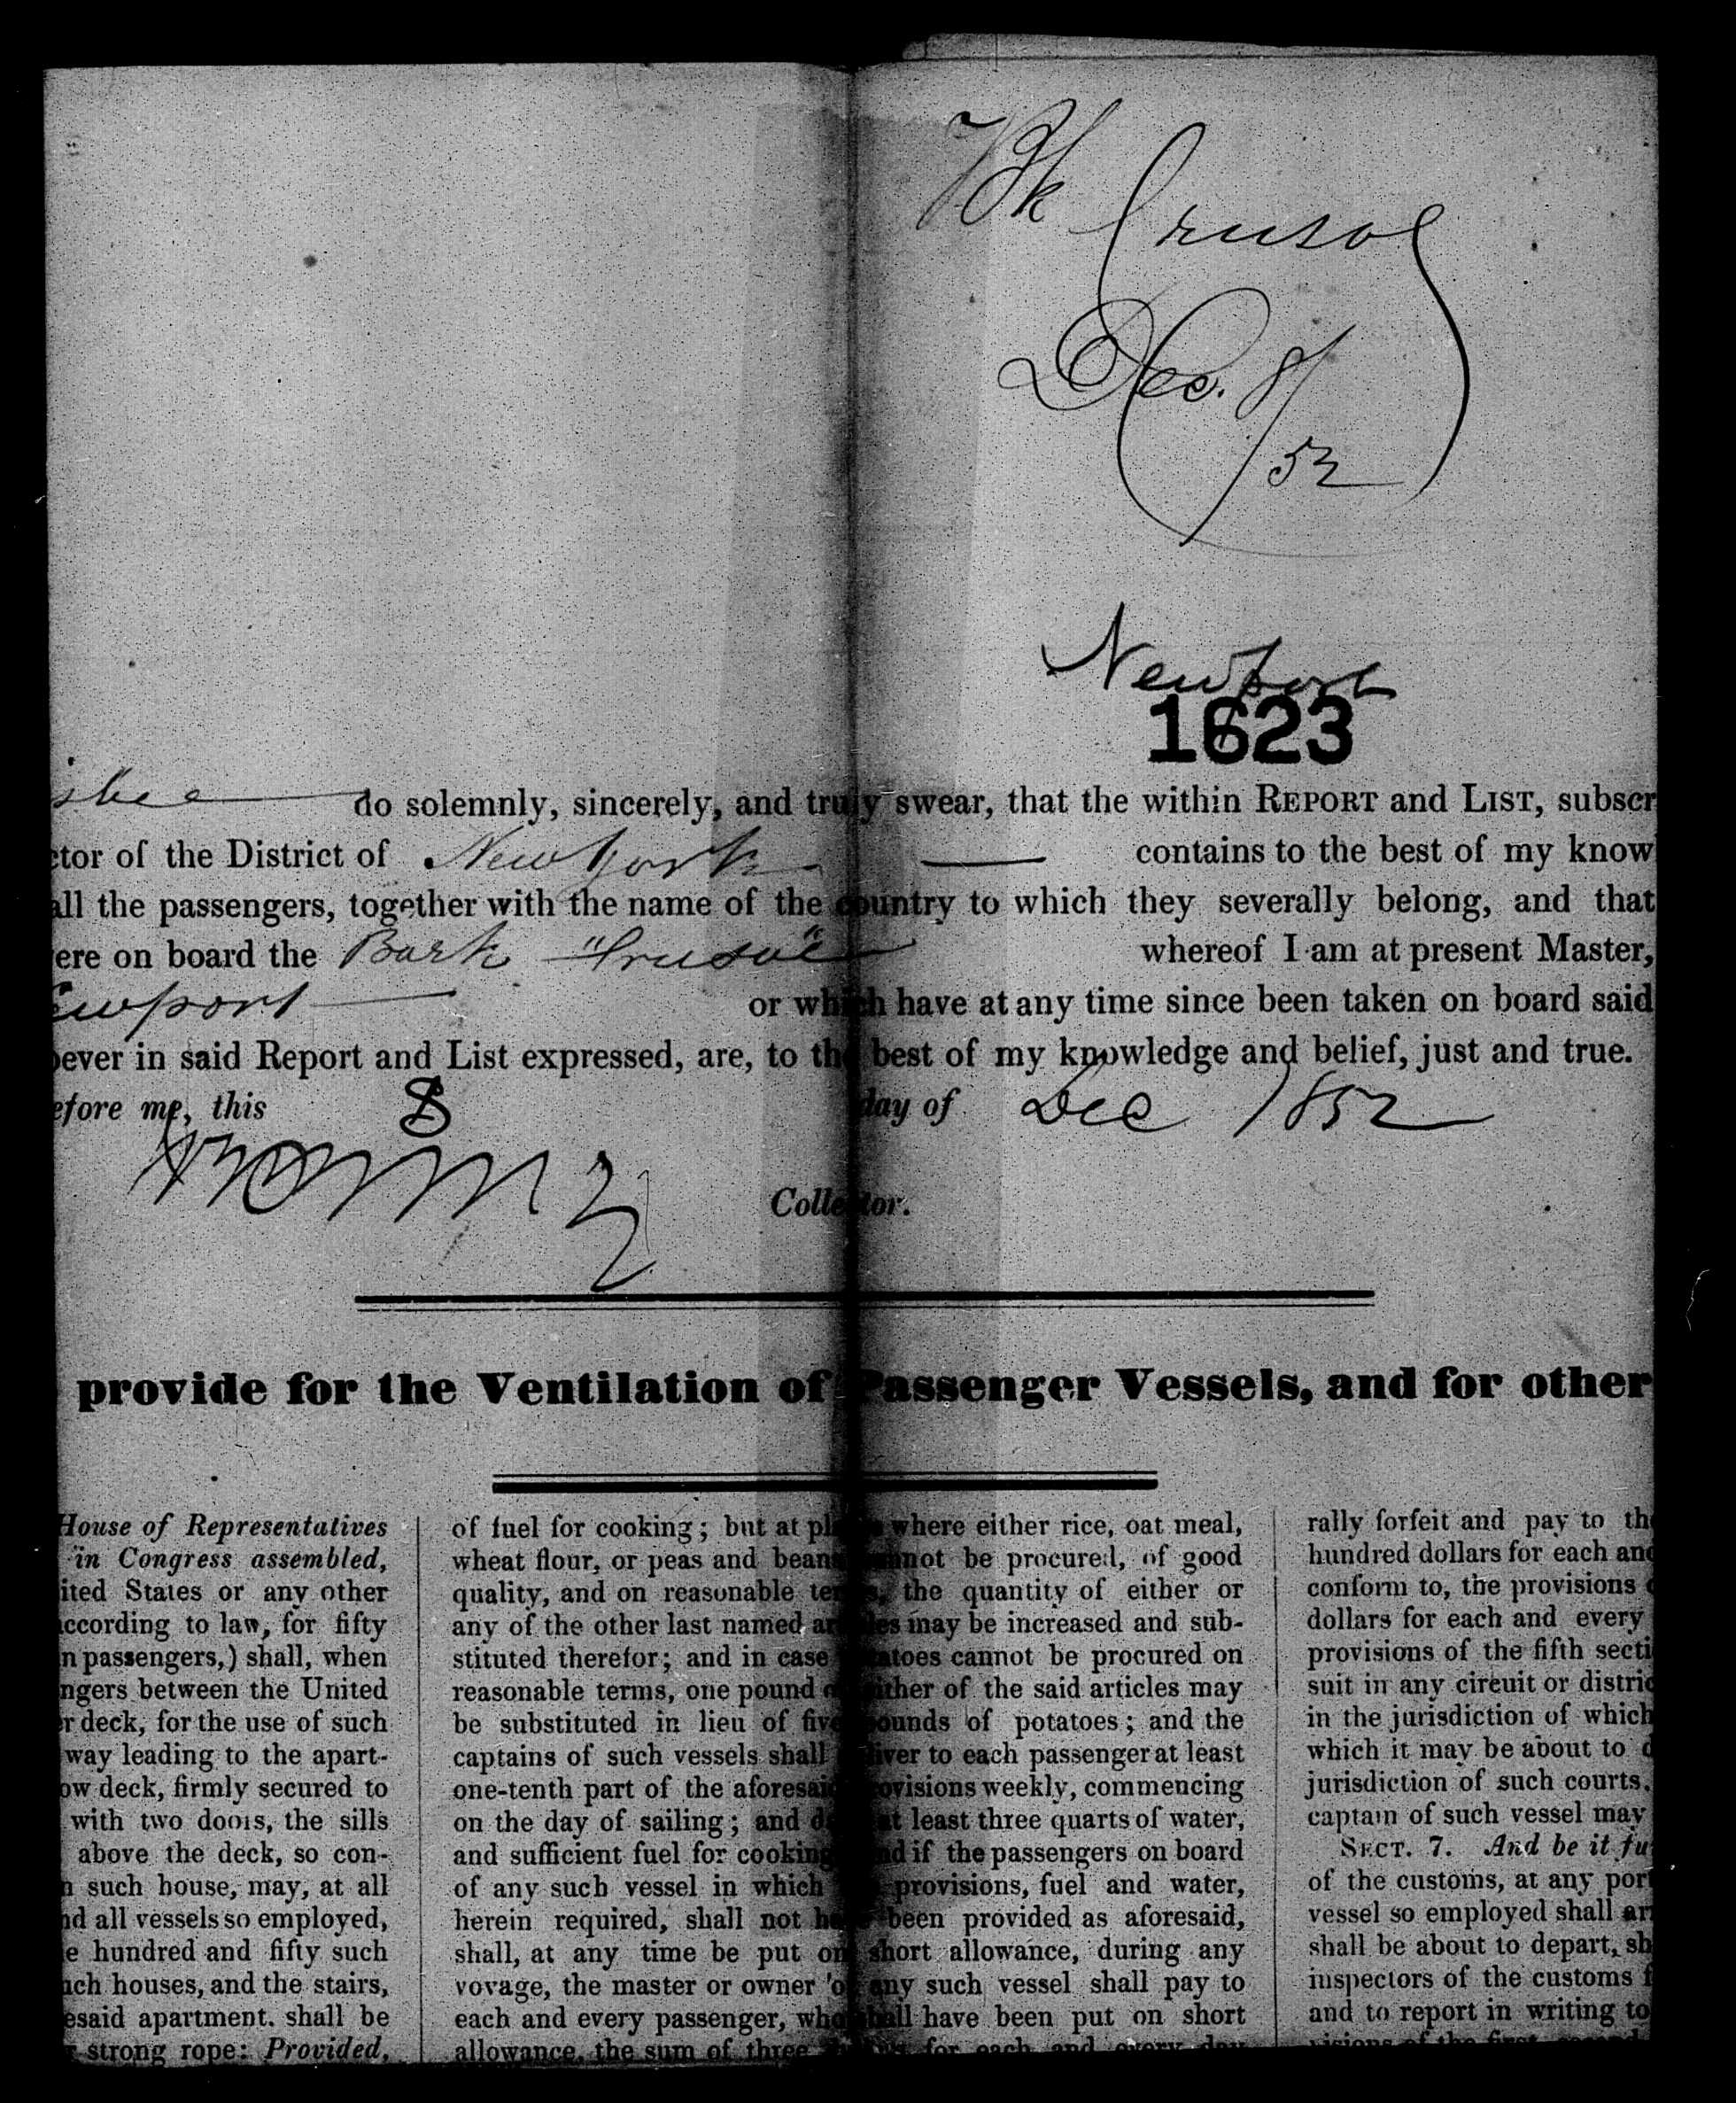 Bk Crusoe
Dec. 8/52
Newport
1623
do solemnly, sincerely, and truly swear, that the within REPORT and LIST, subscr
ctor of the District of New York contains to the best of my know
all the passengers, together with the name of the country to which they severally belong, and that
ere on board the Bark "Crusoe" whereof I am at present Master,
ewport or which have at any time since been taken on board said
oever in said Report and List expressed, are, to the best of my knowledge and belief, just and true.
efore me, this 8 day of Dec 1852
Collector.
provide for the Ventilation of Passenger Vessels, and for other
House of Representatives
in Congress assembled,
ited States or any other
ccording to law, for fifty
n passengers,) shall, when
ngers between the United
r deck, for the use of such
way leading to the apart-
ow deck, firmly secured to
with two doors, the sills
above the deck, so con-
h such house, may, at all
nd all vessels so employed,
e hundred and fifty such
uch houses, and the stairs,
esaid apartment. shall be
strong rope: Provided,
of fuel for cooking; but at places where either rice, oat meal,
wheat flour, or peas and beans cannot be procured, of good
quality, and on reasonable terms, the quantity of either or
any of the other last named articles may be increased and sub-
stituted therefor; and in case potatoes cannot be procured on
reasonable terms, one pound of either of the said articles may
be substituted in lieu of five pounds of potatoes; and the
captains of such vessels shall deliver to each passenger at least
one-tenth part of the aforesaid provisions weekly, commencing
on the day of sailing; and daily at least three quarts of water,
and sufficient fuel for cooking; and if the passengers on board
of any such vessel in which the provisions, fuel and water,
herein required, shall not have been provided as aforesaid,
shall, at any time be put on short allowance, during any
voyage, the master or owner of any such vessel shall pay to
each and every passenger, who shall have been put on short
allowance, the sum of three dollars for each and every day
rally forfeit and pay to the
hundred dollars for each and
conform to, the provisions o
dollars for each and every
provisions of the fifth secti
suit in any circuit or distric
in the jurisdiction of which
which it may be about to d
jurisdiction of such courts.
captain of such vessel may
SECT. 7. And be it fu
of the customs, at any port
vessel so employed shall arr
shall be about to depart, sh
inspectors of the customs f
and to report in writing to
visions of the first, second